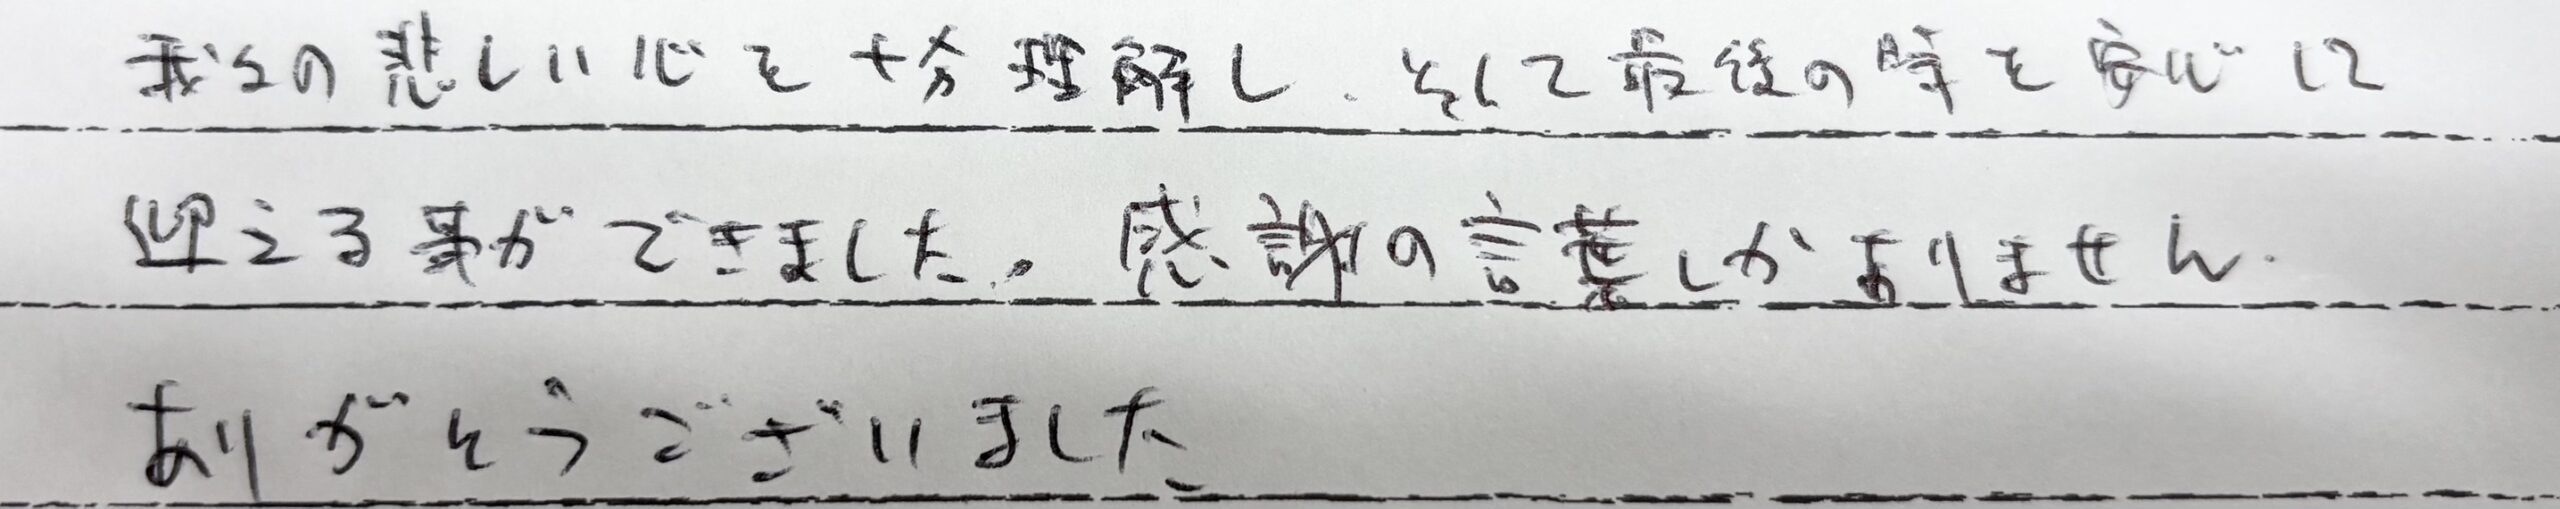 我々の悲しい心を十分理解し、そして最後の時を安心して
迎える事ができました。感謝の言葉しかありません。
ありがとうございました